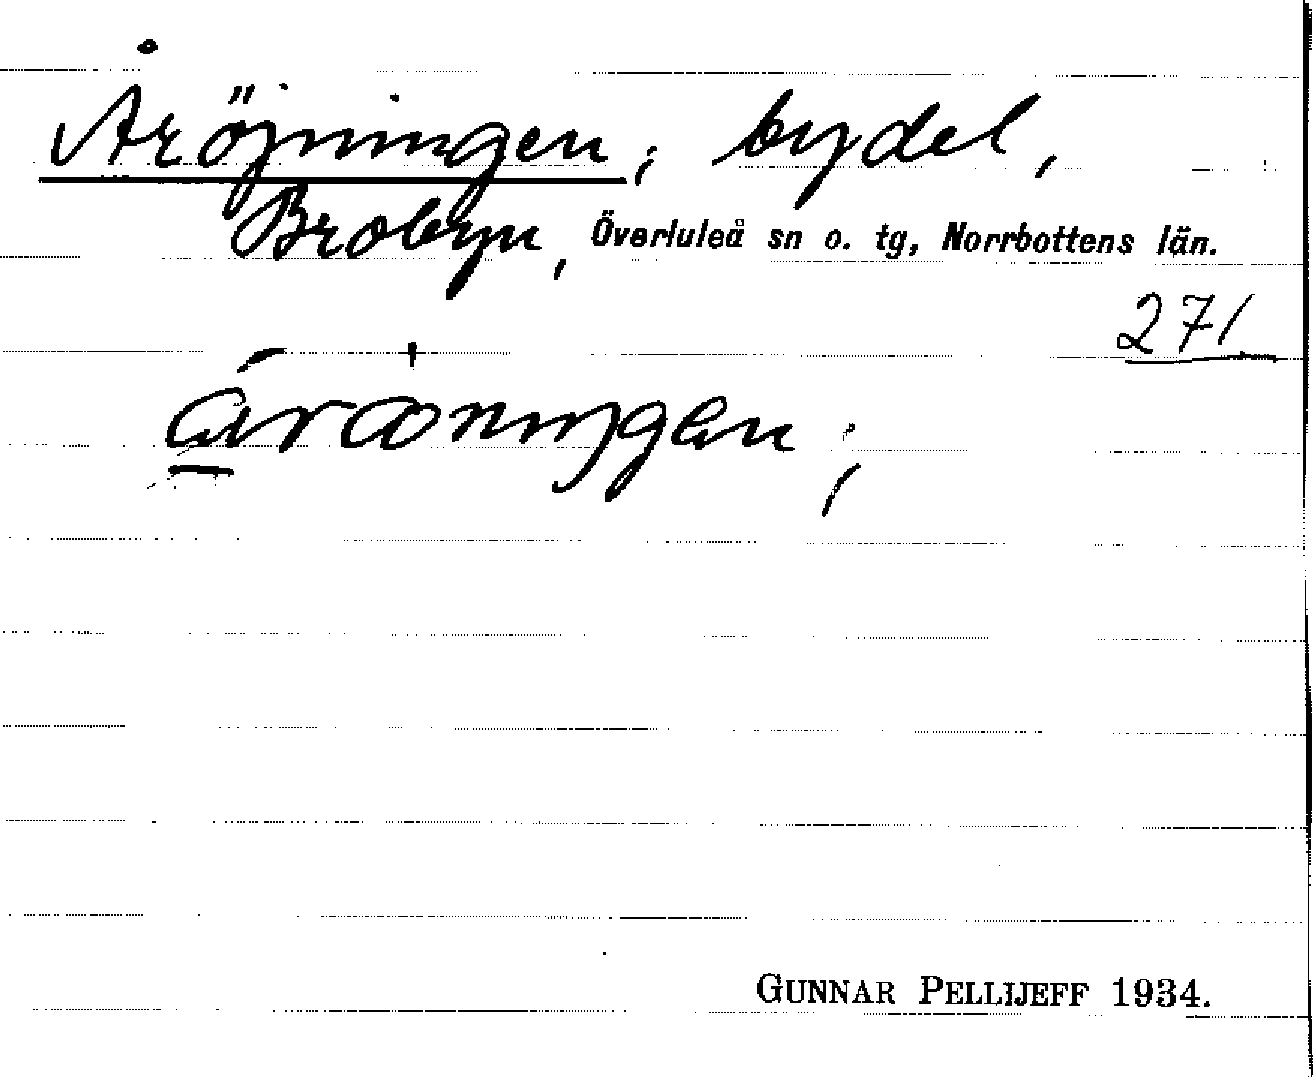 Åröjningen, bydel,
Brobyn, Överluleå sn o. tg, Norrbottens län.
271
GUNNAR PELLIJEFF 1934.